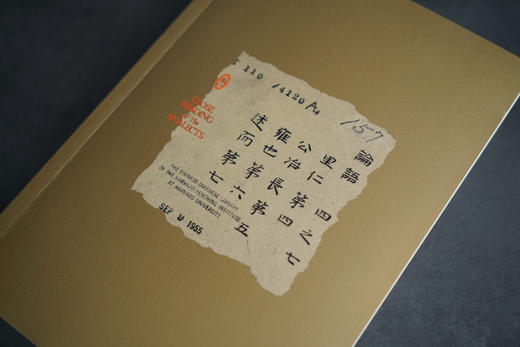 110 /4120
157
CLOSE
READING
of the
ANALECTS
論語 四之七
里仁第四
公冶長第五
雍也第六
述而第七
THE CHINESE-JAPANESE LIBRARY
OF THE HARVARD-YENCHING INSTITUTE
AT HARVARD UNIVERSITY
SEP 1955